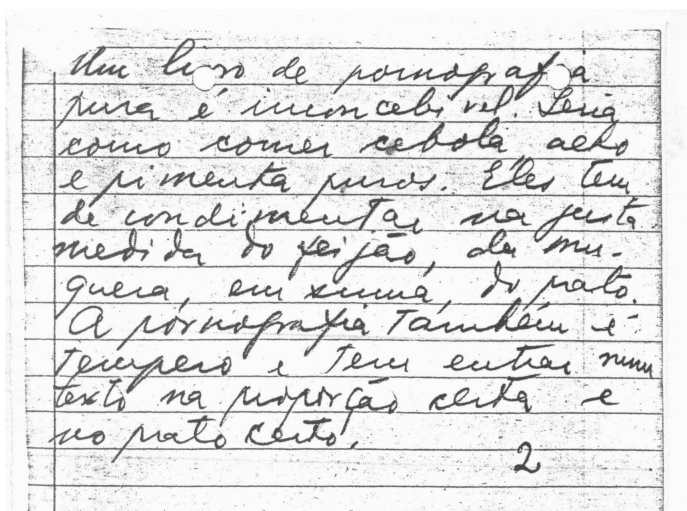 Um livro de pornografia
pura é inconcebivel. Seria
como comer cebola alho
e pimenta puros. Eles tem
de condimentar na justa
medida do feijão, da mu-
queca, em suma, do prato.
A pornografia também é
tempero e tem entrar num
texto na proporção certa e
no prato certo.
2